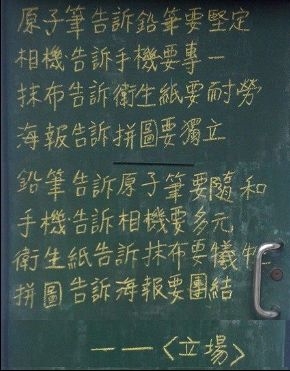 原子筆告訴鉛筆要堅定
相機告訴手機要專一
抹布告訴衛生紙要耐勞
海報告訴拼圖要獨立
鉛筆告訴原子筆要隨和
手機告訴相機要多元
衛生紙告訴抹布要犧牲
拼圖告訴海報要團結
——〈立場〉